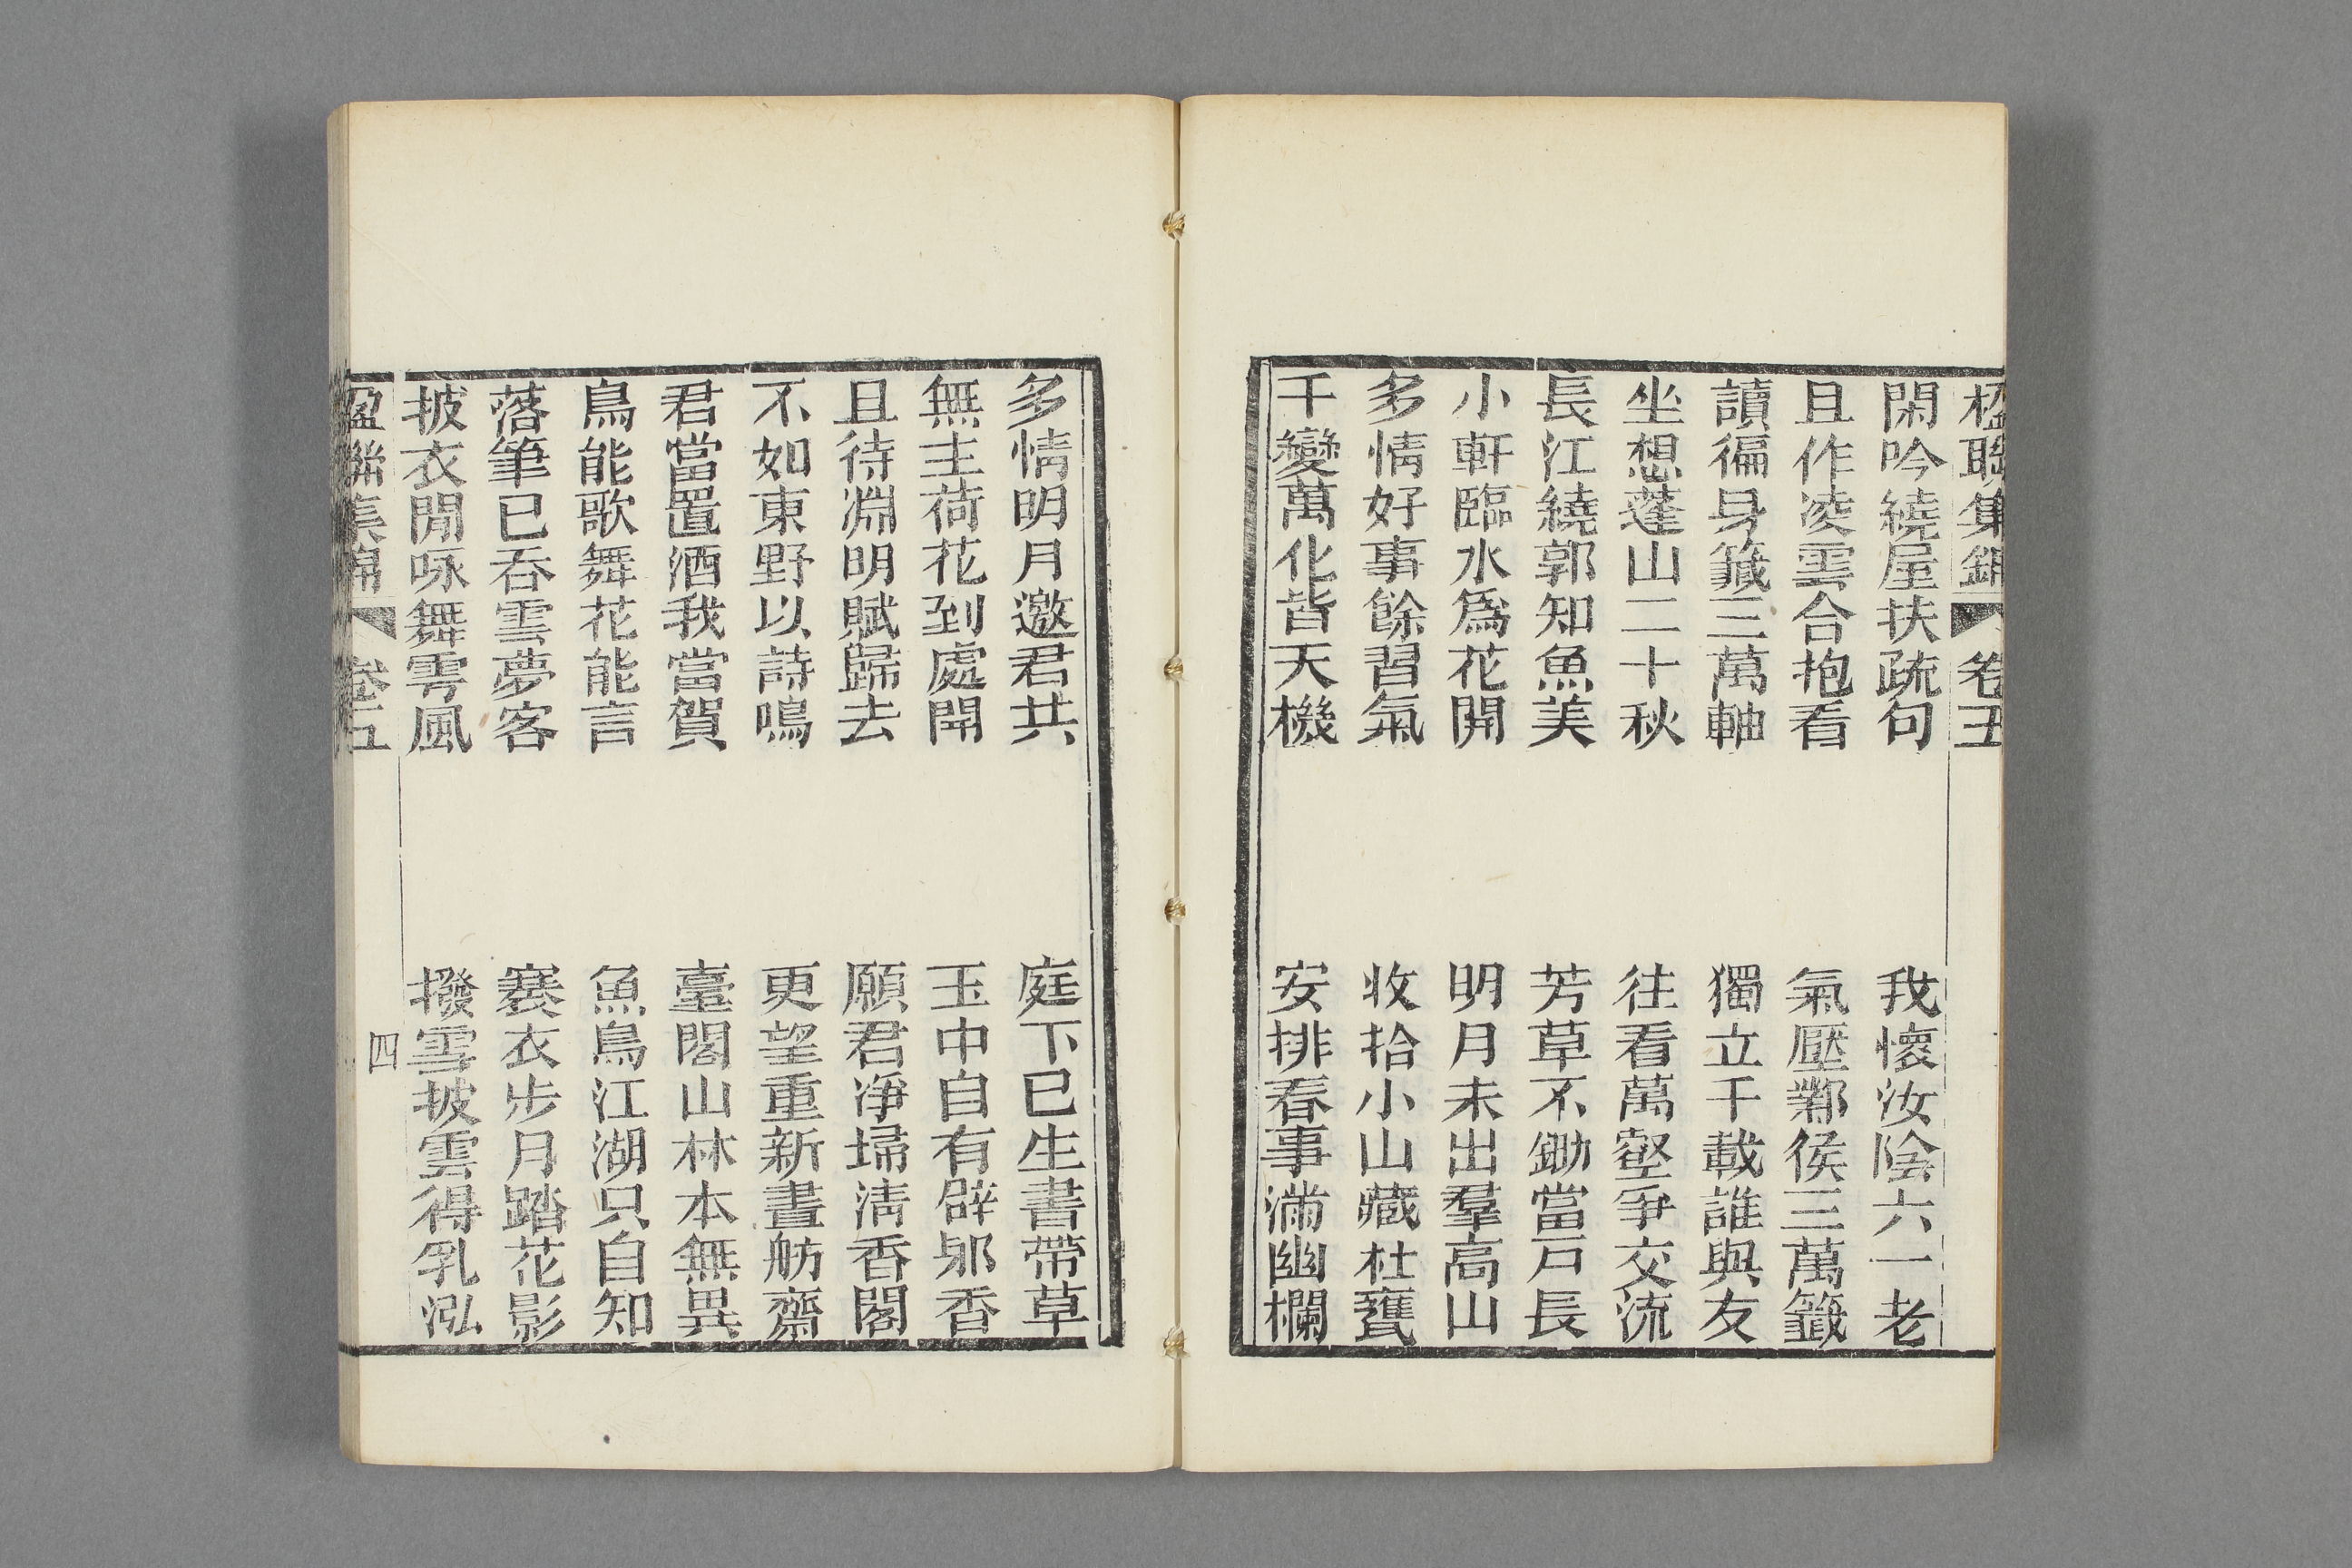 楹聯集錦 卷五
閑吟繞屋扶疏句 我懷汝陰六一老
且作凌雲合抱看 氣壓鄴侯三萬籤
讀徧身籤三萬軸 獨立千載誰與友
坐想蓬山二十秋 往看萬壑爭交流
長江繞郭知魚美 芳草不鋤當戸長
小軒臨水爲花開 明月未出羣高山
多情好事餘習氣 收拾小山藏杜甕
千變萬化皆天機 安排春事滿幽欄
多情明月邀君共 庭下已生書帶草
無主荷花到處開 玉中自有辟邪香
且待淵明賦歸去 願君淨埽清香閣
不如東野以詩鳴 更望重新畫舫齋
君當置酒我當賀 臺閣山林本無異
鳥能歌舞花能言 魚鳥江湖只自知
落筆已吞雲夢客 褰衣步月踏花影
披衣閒咏舞雩風 撥雪披雲得乳泓
楹聯集錦 卷五 四